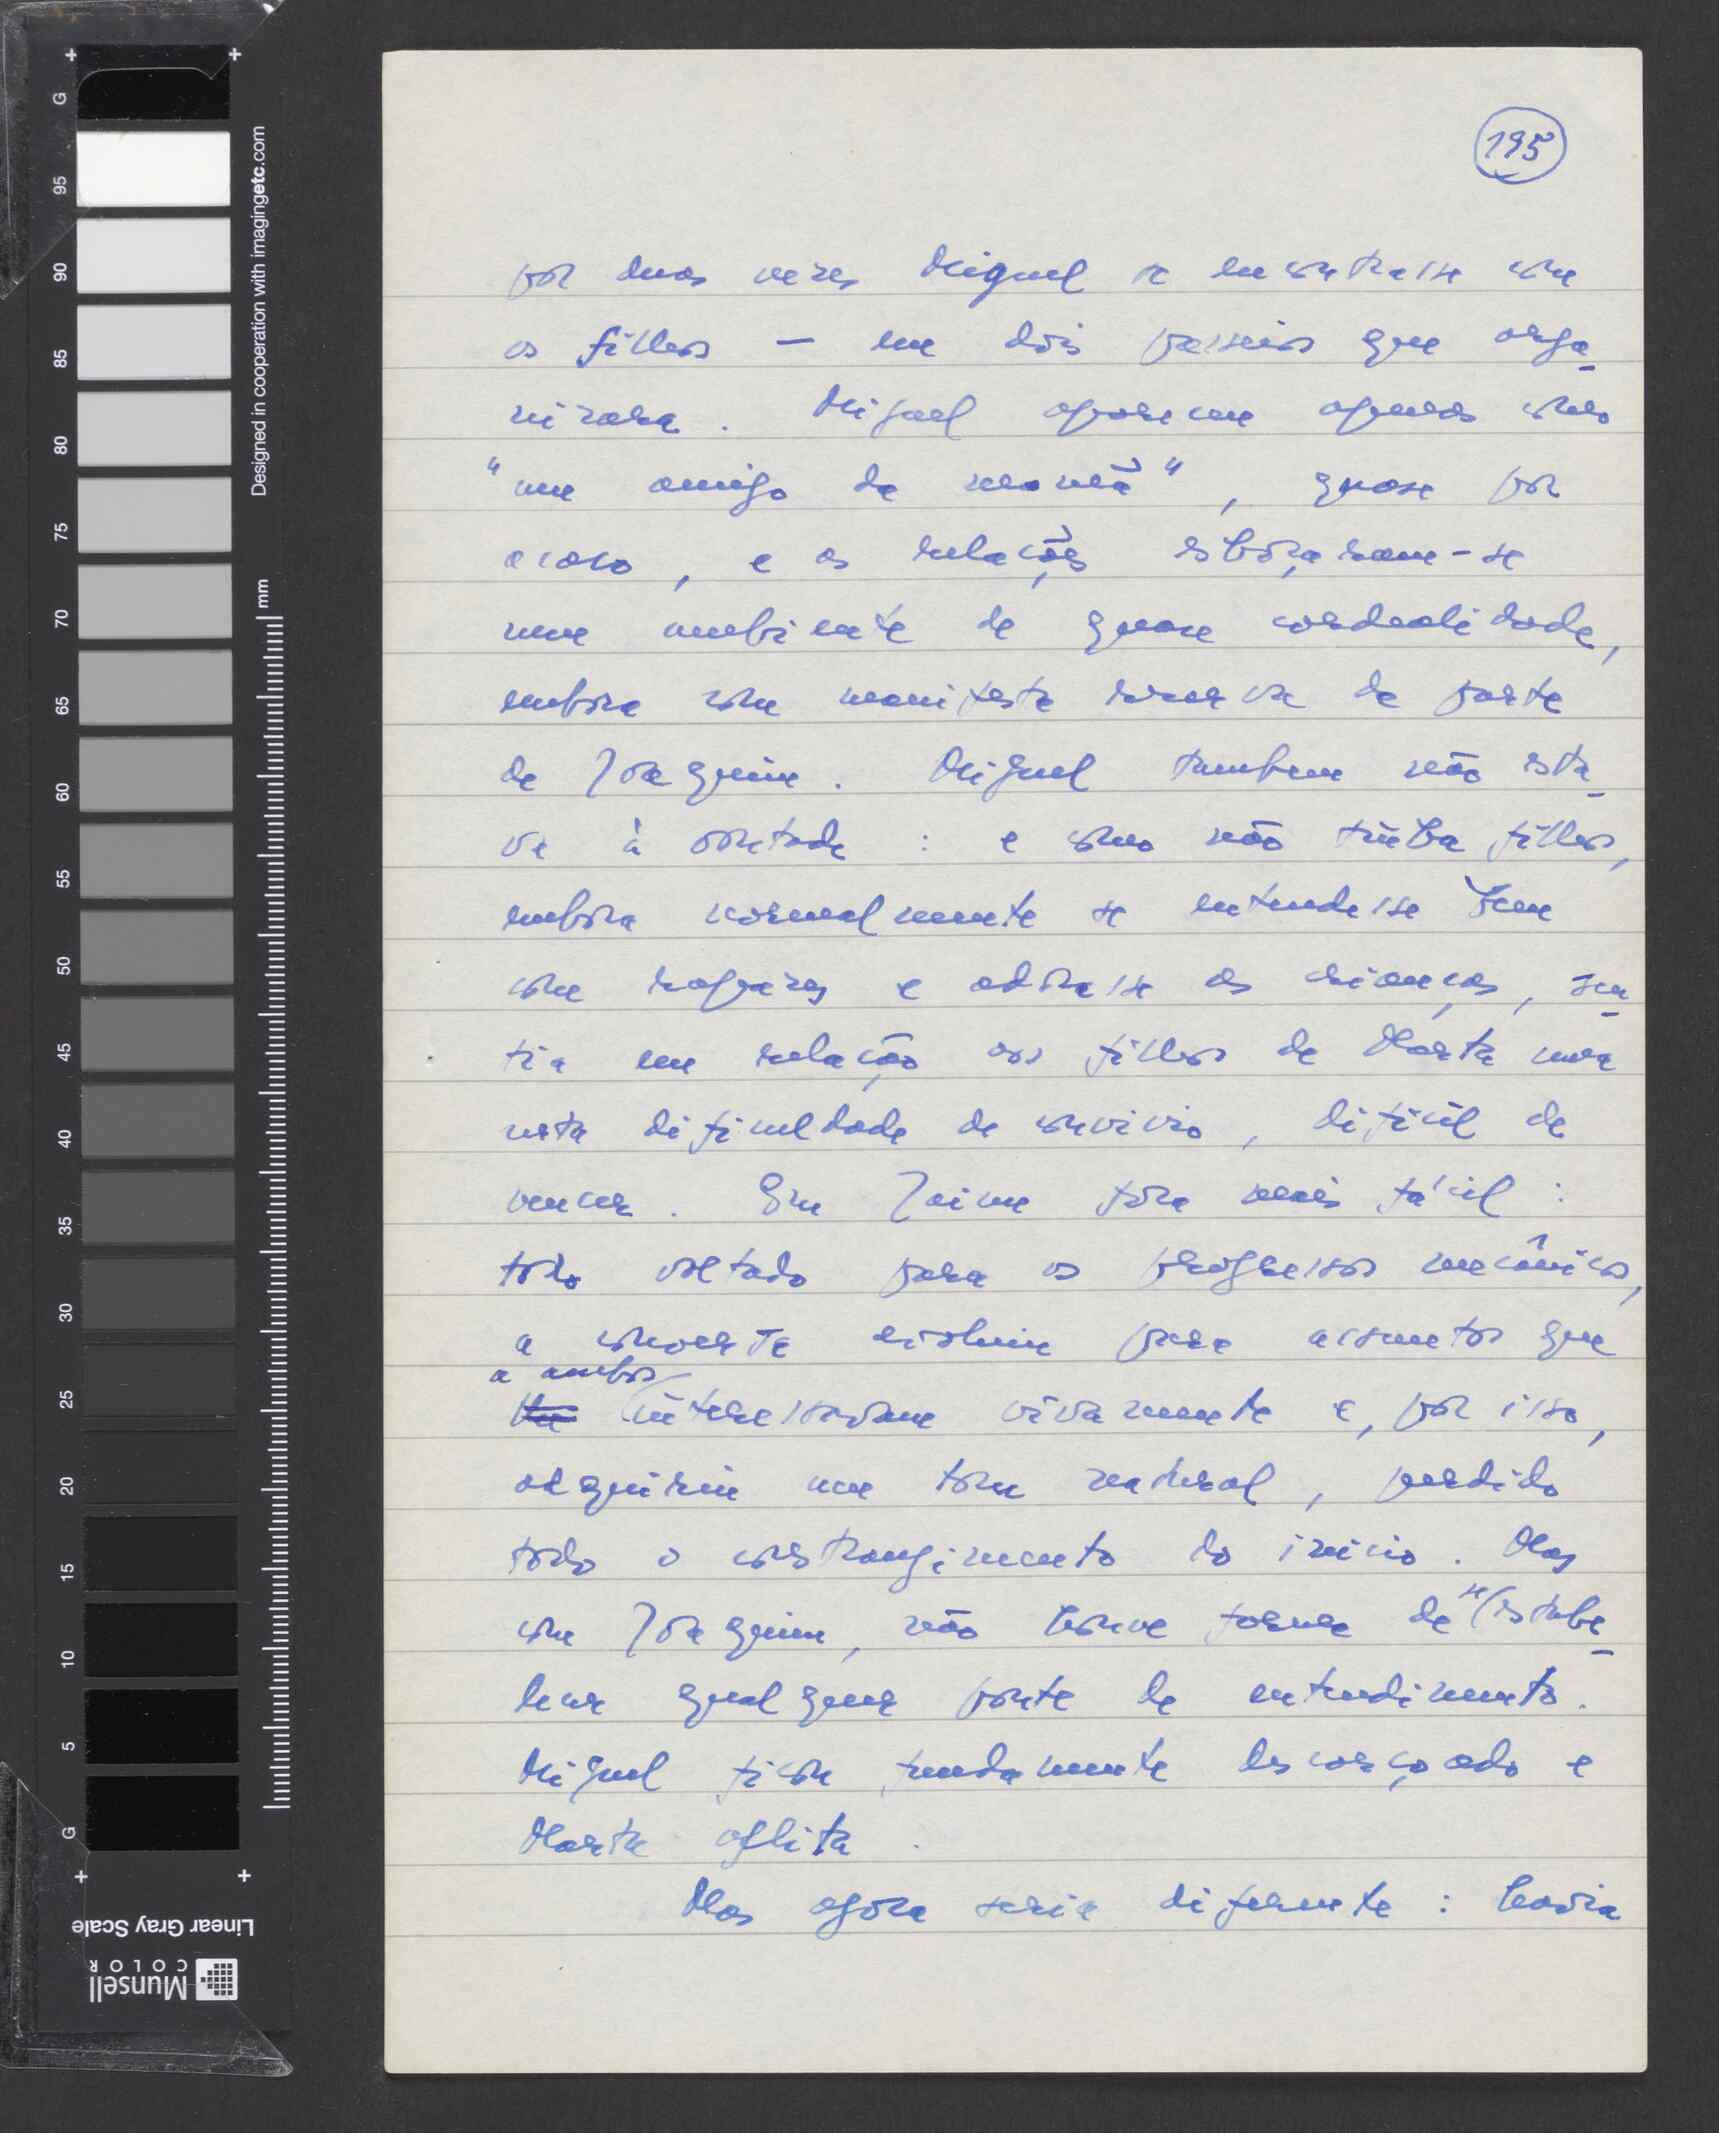 195
por duas vezes Miguel se encontrasse com
os filhos — em dois passeios que orga-
nizara. Miguel aparecera apenas como
"um amigo da mamã", quase por
acaso, e as relações esboçaram-se
num ambiente de quase cordealidade,
embora com manifesta reserva da parte
de Joaquim. Miguel tambem não esta-
va à vontade : e como não tinha filhos,
embora normalmente se entendesse bem
com rapazes e adorasse as crianças, sen-
tia em relação aos filhos de Marta uma
certa dificuldade de convivio, dificil de
vencer. Com Jaime fora mais fácil :
todo voltado para os progressos mecânicos,
a conversa evoluiu para assuntos que
a ambos
lhe interessavam vivamente e, por isso,
adquiriu um tom natural, perdido
todo o constrangimento do inicio. Mas
com Joaquim, não houve forma de se estabe-
lecer qualquer ponte de entendimento.
Miguel ficou fundamente descorçoado e
Marta aflita.
Mas agora seria diferente : havia
G
95
90
85
80
75
70
65
60
55
50
45
40
35
30
25
20
15
10
5
G
Designed in cooperation with imagingetc.com
mm
Linear Gray Scale
Munsell
COLOR